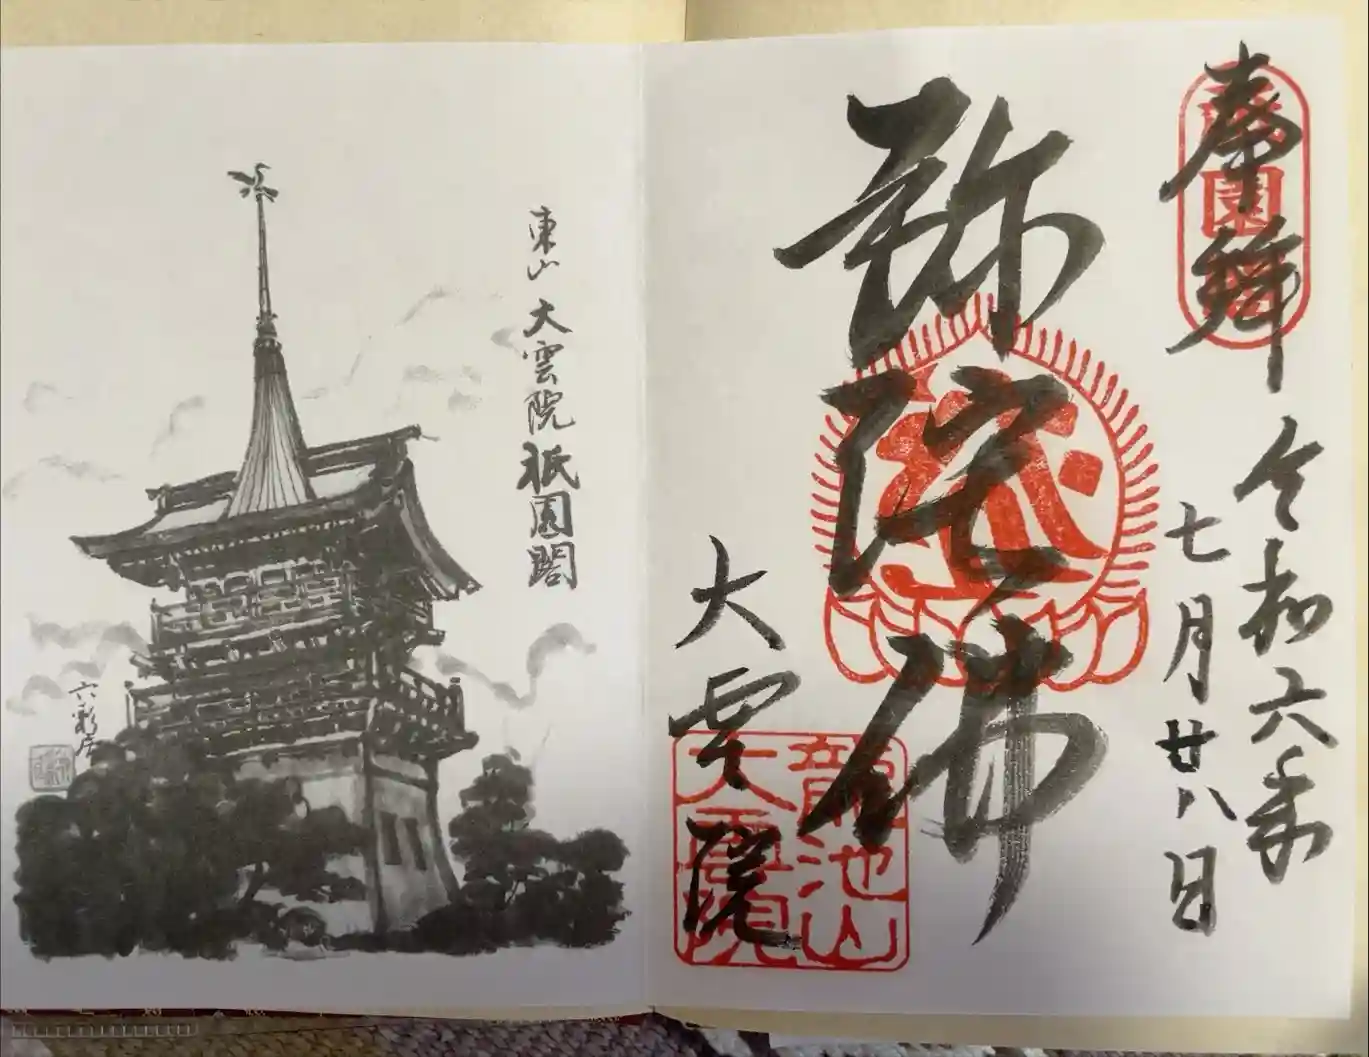 奉拝
令和六年
七月廿八日
弥陀佛
大雲院
龍池山
大雲院
東山 大雲院 祇園閣